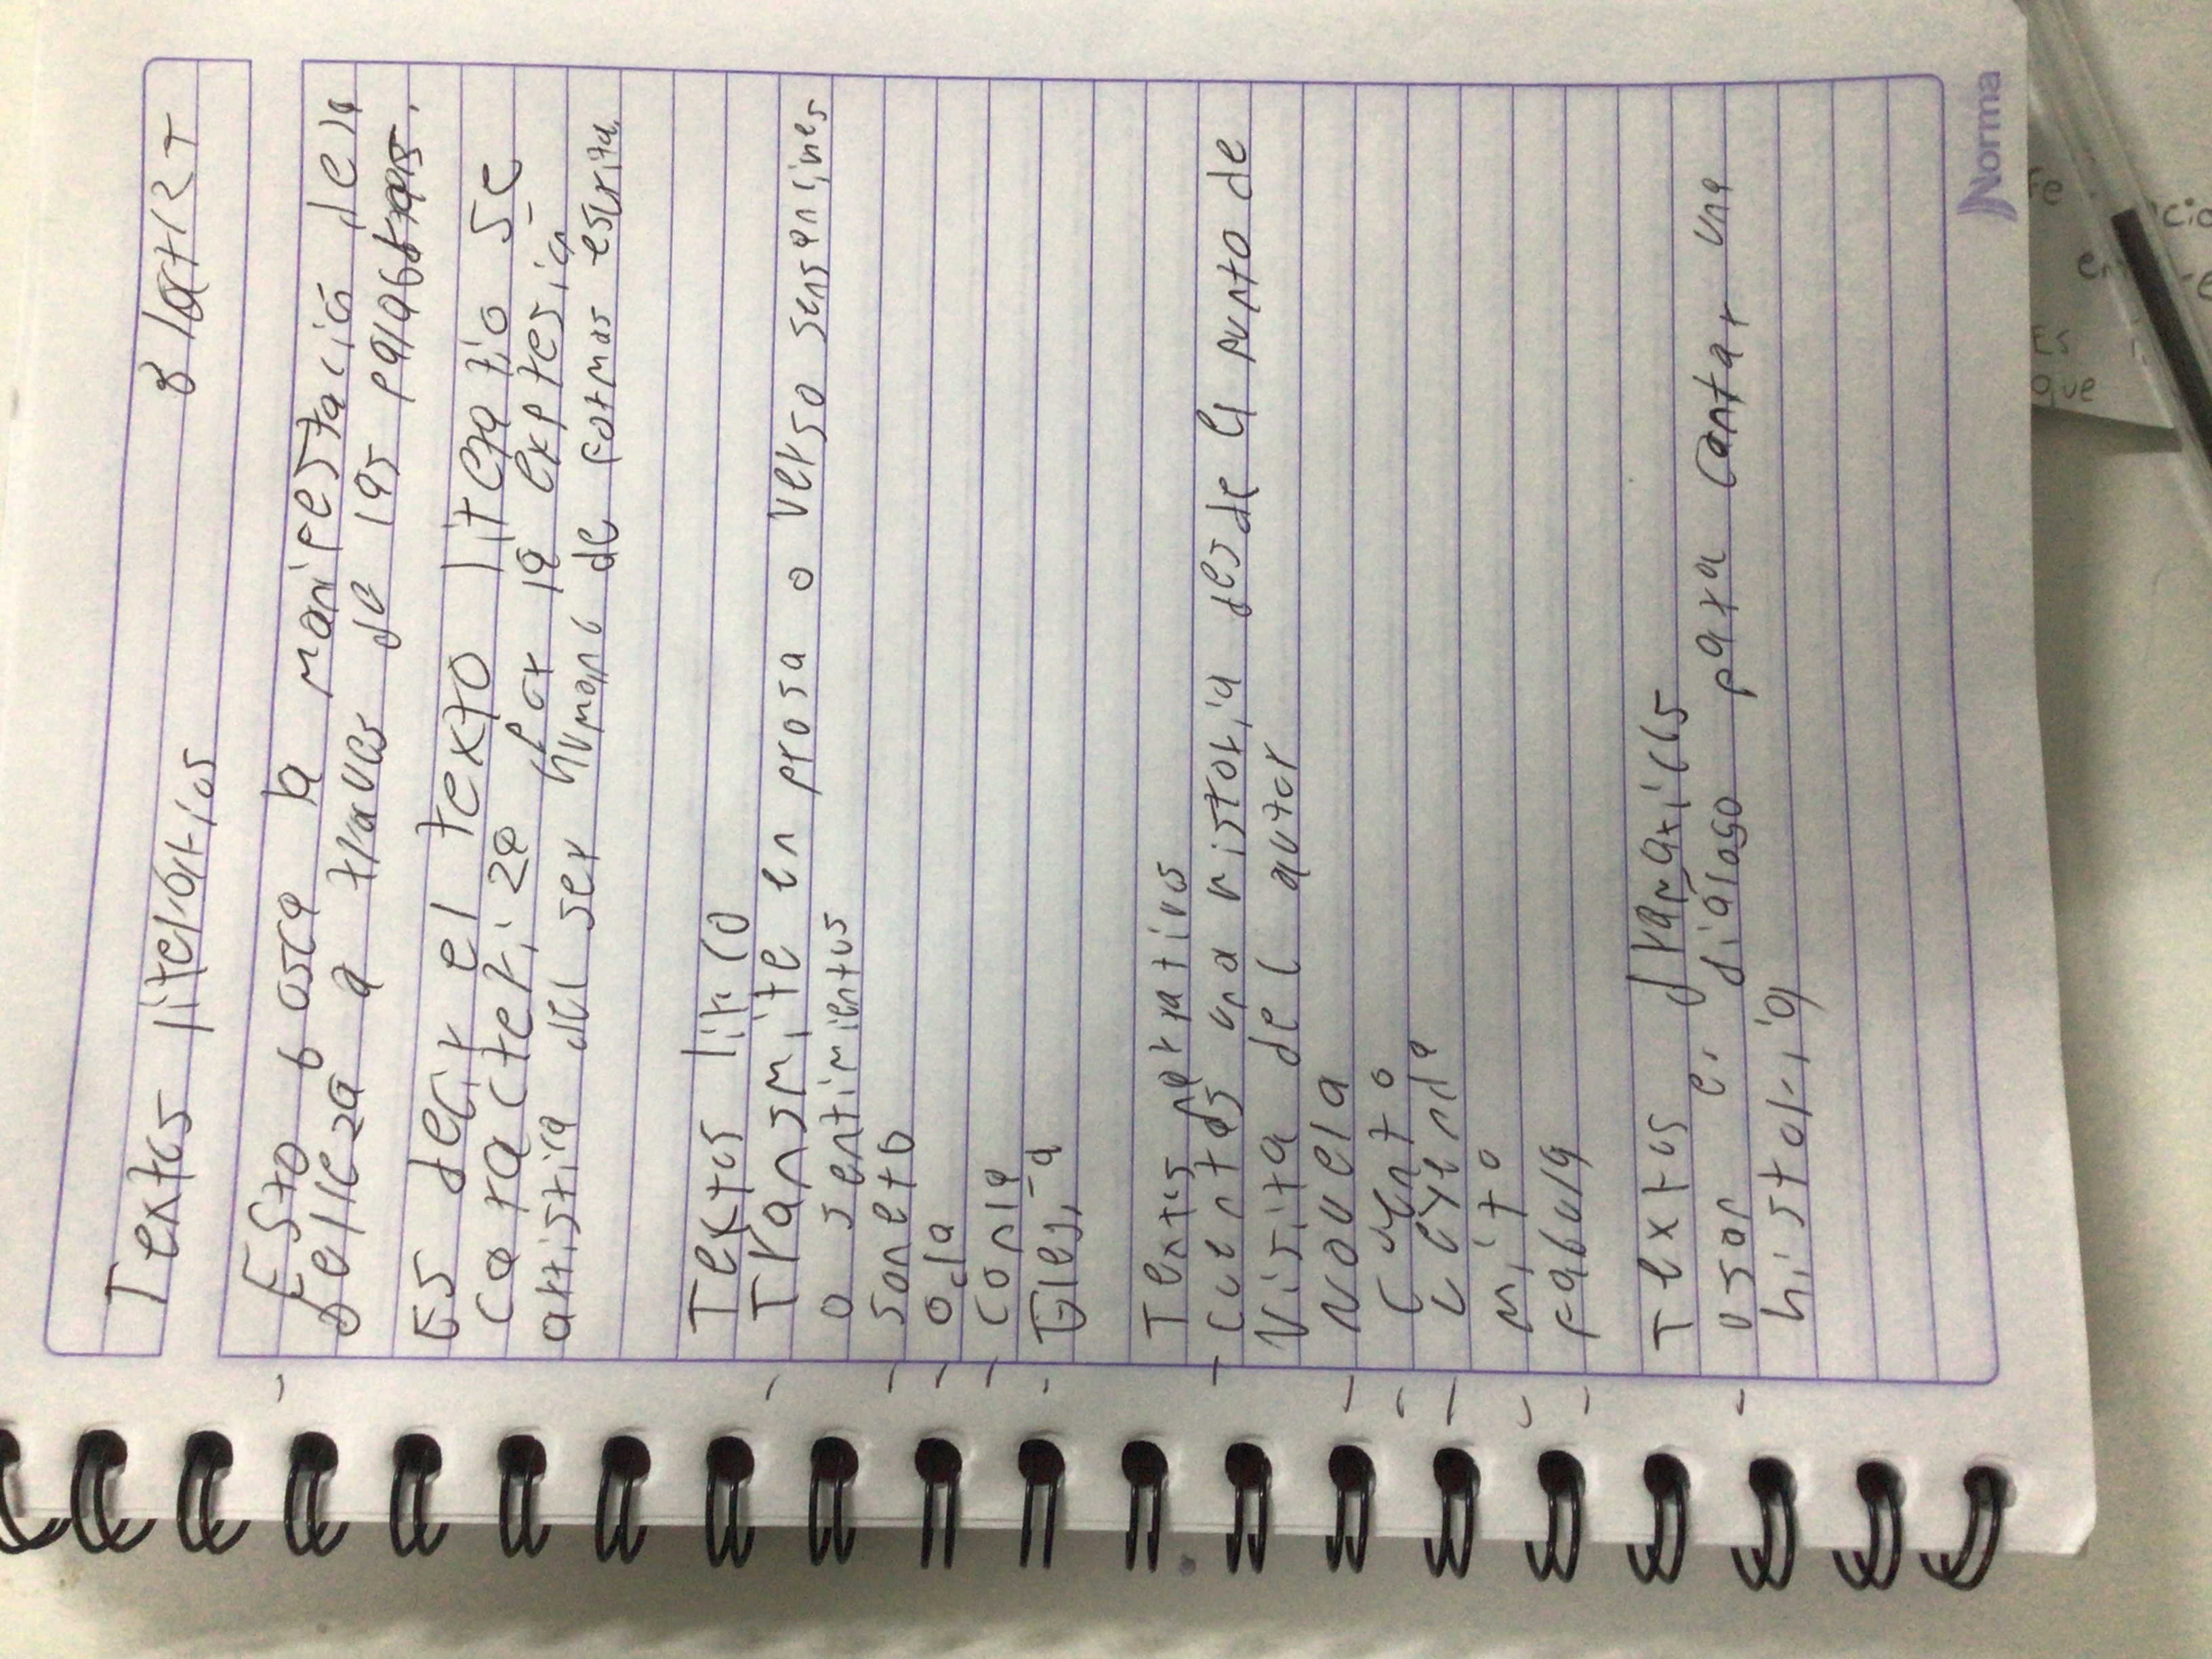 Textos literarios
Esto busca la manifestación de la
belleza a traves de las palabras.
Es decir el texto literario se
caracteriza por la expresión
artistica del ser humano de formas escrita.
Textos lirico
Transmite en prosa o verso sensaciones
o sentimientos
soneto
oda
Elegia
Textos narrativos
Cuentas una historia desde el punto de
Vista del autor
Novela
Cuento
Leyenda
mito
fabula
Textos dramaticos
usan el diálogo para contar una
historia
Norma
fe
cio
en
re
Es
que